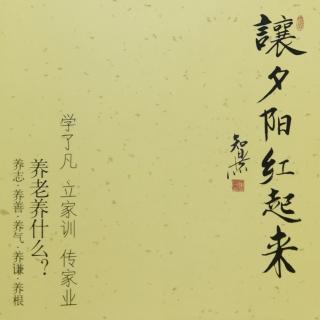 讓夕阳红起来
学了凡 立家训 传家业
养老养什么?
养志·养善·养气·养谦·养根